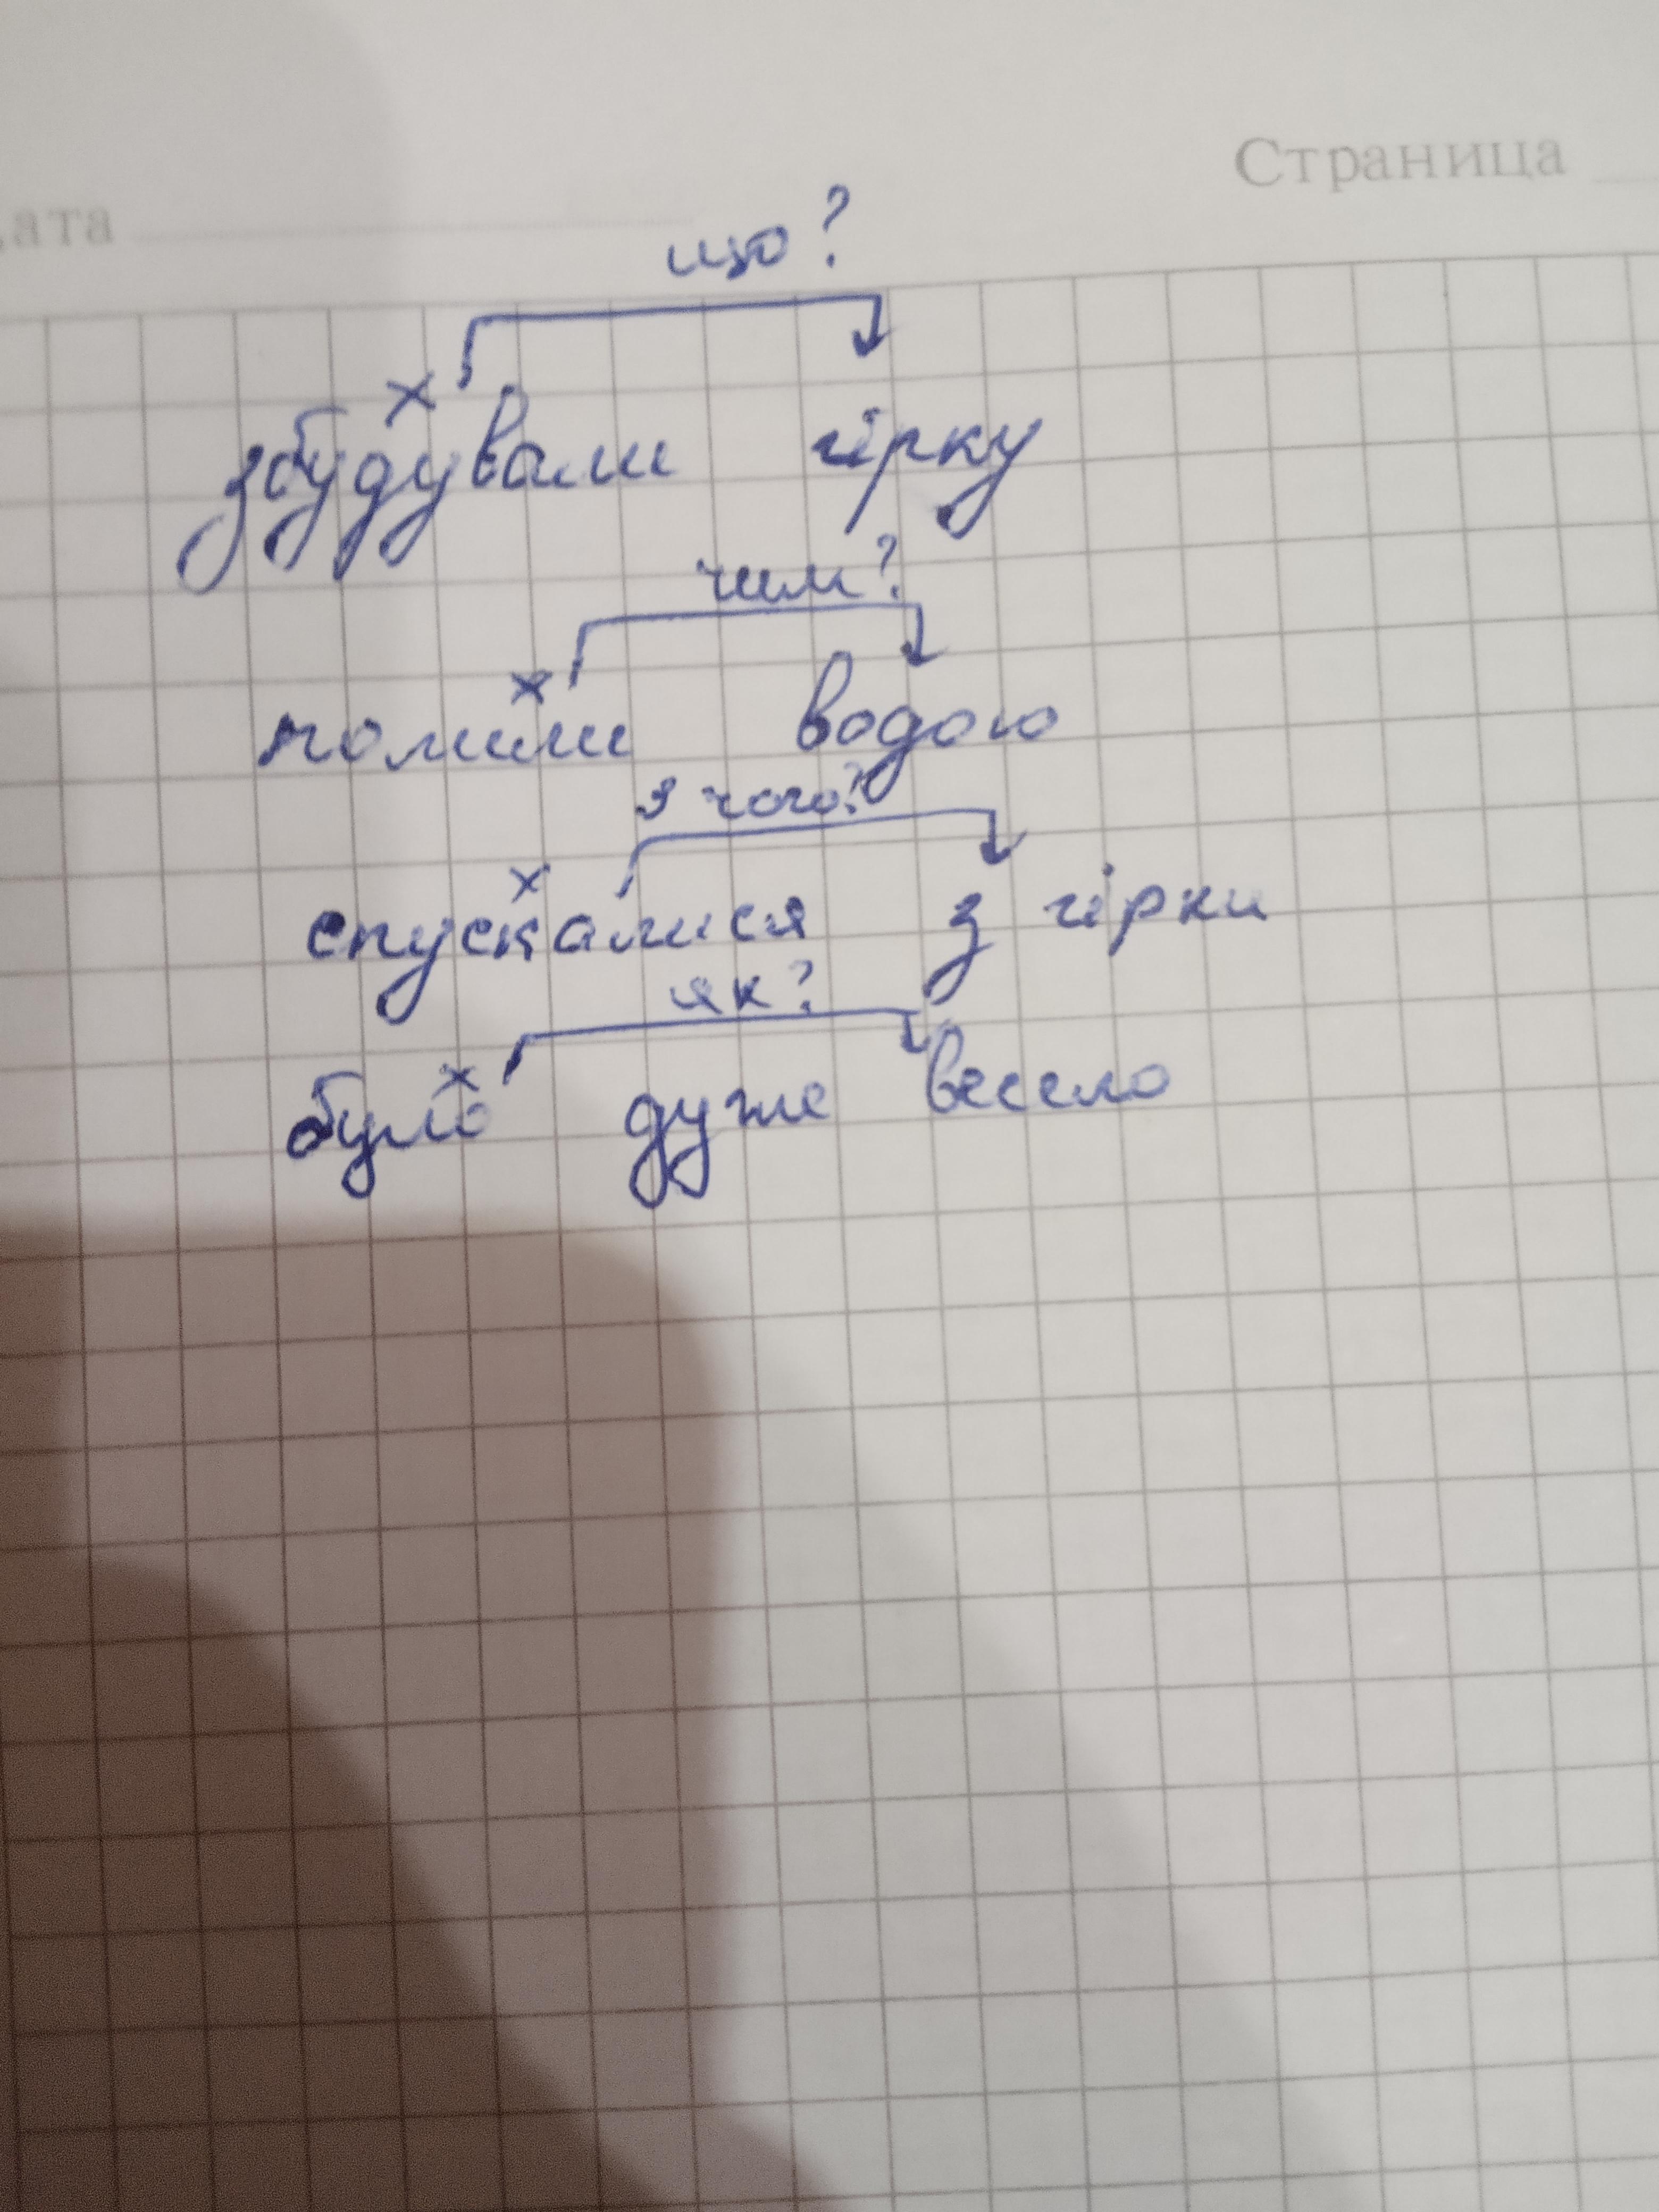 Страница
ата
що?
х
збудували гірку
чим?
х
полили водою
з чого?
х
спускалися з гірки
як?
х
було дуже весело